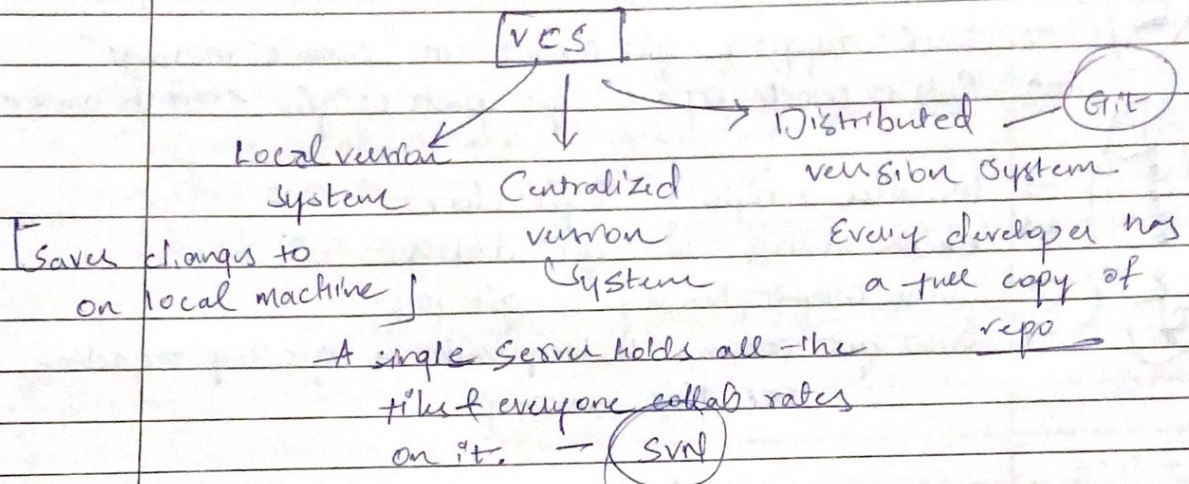 VCS
Local version
system
[Saves changes to
on local machine]
Centralized
version
System
A single Server holds all the
files & everyone collab rates
on it. - SVN
Distributed - Git
version System
Every developer has
a full copy of
repo